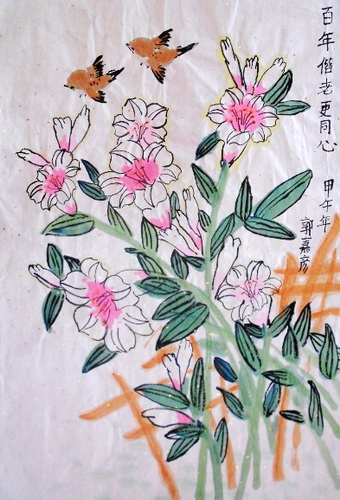 百年偕老更同心
甲午年
郭嘉彦